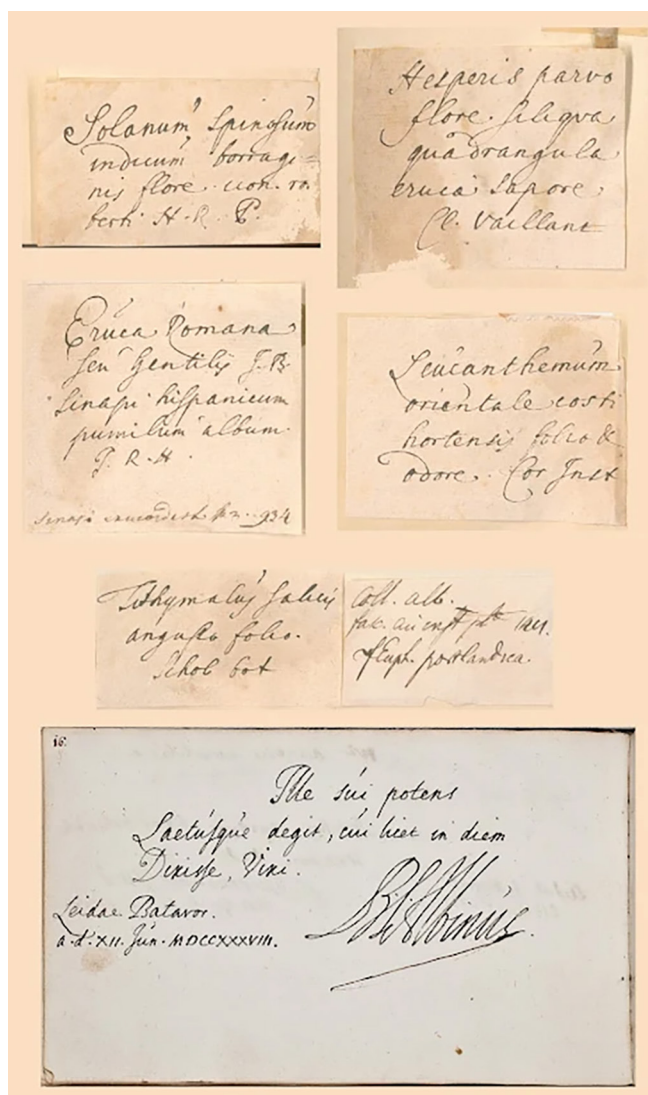 Solanum spinosum
indicum borragi=
nis flore. icon. ro
berti H. R. P.
Hesperis parvo
flore. siliqua
quadrangula
eruca sapore.
Cl. Vaillant
Eruca Romana
seu Gentilis J. B.
Sinapi hispanicum
pumilum album.
J. R. H.
Sinapi 934
Leucanthemum
orientale costi
hortensis folio &
odore. Cor Inst
Tithymalus salicis
angusto folio.
Schol bot
Coll. alb.
Euph. portlandica.
16.
Ille sui potens
Laetusque degit, cui licet in diem
Dixisse, Vixi.
Leidae Batavor.
a. d. XII. Jun. MDCCXXXVIII.
BSAlbinus.